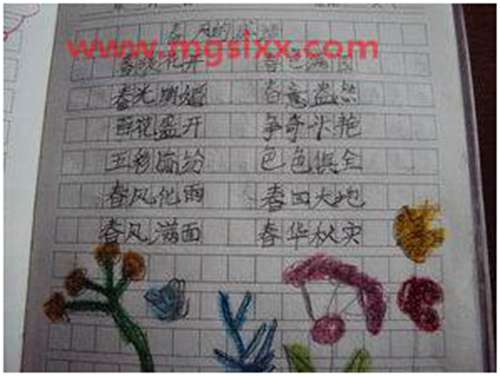 春 的
www.mgsixx.com
春暖花开 春色满园
春光明媚 春意盎然
鲜花盛开 争奇斗艳
五彩缤纷 色色俱全
春风化雨 春回大地
春风满面 春华秋实